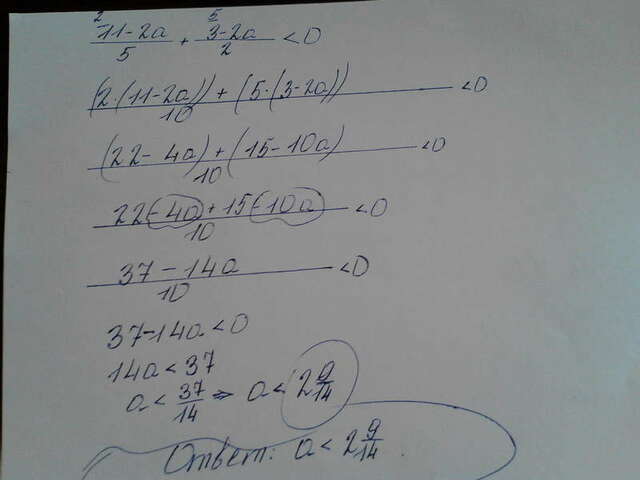 (11-2a)/5 + (3-2a)/2 <0
((2·(11-2a))+(5·(3-2a)))/10 <0
((22-4a)+(15-10a))/10 <0
(22-4a+15-10a)/10 <0
(37-14a)/10 <0
37-14a<0
14a<37
a< 37/14 ⇒ a< 2 9/14
Ответ: a< 2 9/14.